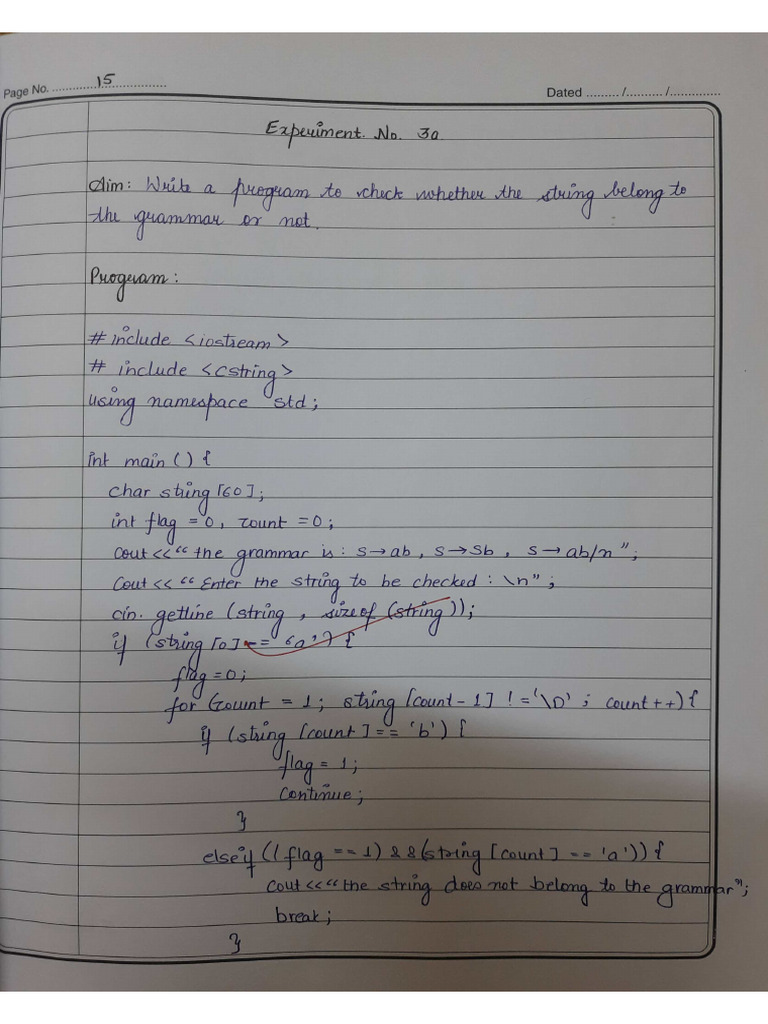 Page No. 15
Dated ........./........../..............
Experiment. No. 3a
Aim: Write a program to check whether the string belong to
the grammar or not.
Program:
# include <iostream>
# include <cstring>
using namespace std;
int main () {
char string [60];
int flag = 0, count = 0;
cout << "the grammar is: S→ab, S→Sb, S→ab/n";
cout << "Enter the string to be checked: \n";
cin. getline (string, sizeof (string));
if (string [0] == 'a') {
flag = 0;
for (count = 1; string [count-1] != '\0'; count++) {
if (string [count] == 'b') {
flag = 1;
continue;
}
elseif ((flag == 1) && (string [count] == 'a')) {
cout << "the string does not belong to the grammar";
break;
}